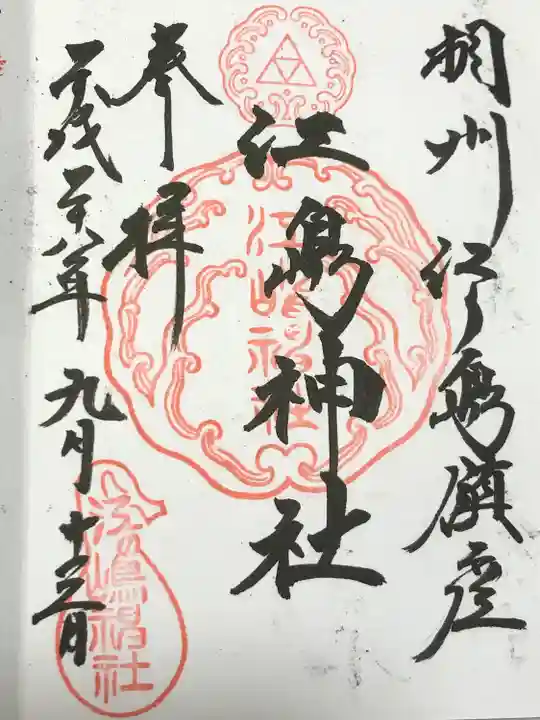 相州江ノ島鎮座
江島神社
奉拝
平成二十八年九月十三日
江嶋神社
江嶋神社